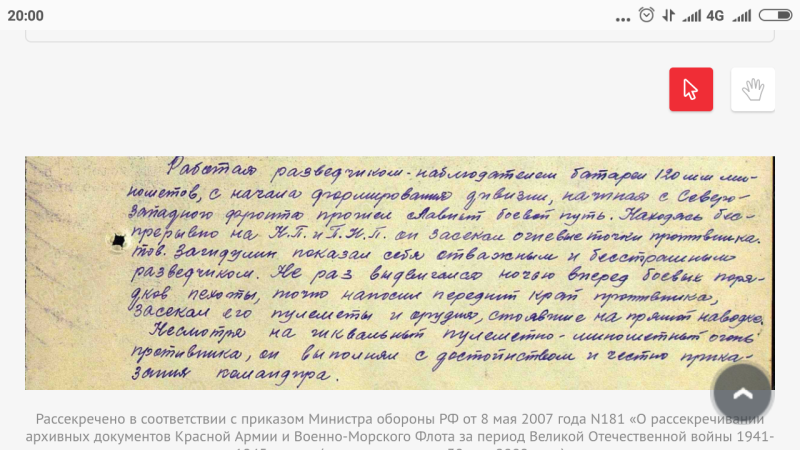 20:00
... 4G
Работая разведчиком-наблюдателем батареи 120 мм ми-
нометов, с начала формирования дивизии, начиная с Северо-
Западного фронта прошел славный боевой путь. Находясь бес-
прерывно на Н.П. и П.Н.П. он засекал огневые точки противника.
Тов. Загидулин показал себя отважным и бесстрашным
разведчиком. Не раз выдвигался ночью вперед боевых поря-
дков пехоты, точно наносил передний край противника,
засекал его пулеметы и орудия, стоявшие на прямой наводке.
Несмотря на шквальный пулеметно-минометный огонь
противника, он выполнял с достоинством и честно прика-
зания командира.
Рассекречено в соответствии с приказом Министра обороны РФ от 8 мая 2007 года N181 «О рассекречивании
архивных документов Красной Армии и Военно-Морского Флота за период Великой Отечественной войны 1941-